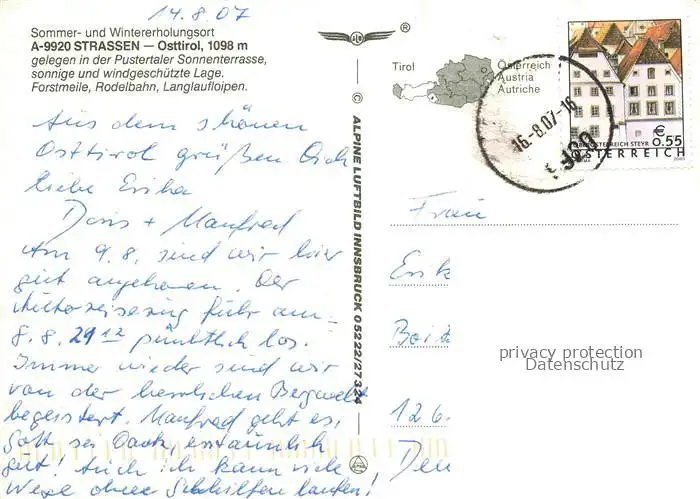 14.8.07
Sommer- und Wintererholungsort
A-9920 STRASSEN — Osttirol, 1098 m
gelegen in der Pustertaler Sonnenterrasse,
sonnige und windgeschützte Lage.
Forstmeile, Rodelbahn, Langlaufloipen.
Aus dem schönen
Osttirol grüßen Dich
liebe Erika
Doris + Manfred
Am 9.8. sind wir hier
gut angekommen. Der
Autoreisezug fuhr am
8.8. 29 12 pünktlich los.
Immer wieder sind wir
von der herrlichen Bergwelt
begeistert. Manfred geht es,
Gott sei Dank, erstaunlich
gut! Auch ich kann viele
Wege ohne Gehhilfen laufen!
© ALPINE LUFTBILD INNSBRUCK 05222/27324
®
Tirol
Österreich
Austria
Autriche
16.-8.07-16
OBERÖSTERREICH STEYR
€ 0.55
ÖSTERREICH
Frau
Erik
126.
privacy protection
Datenschutz